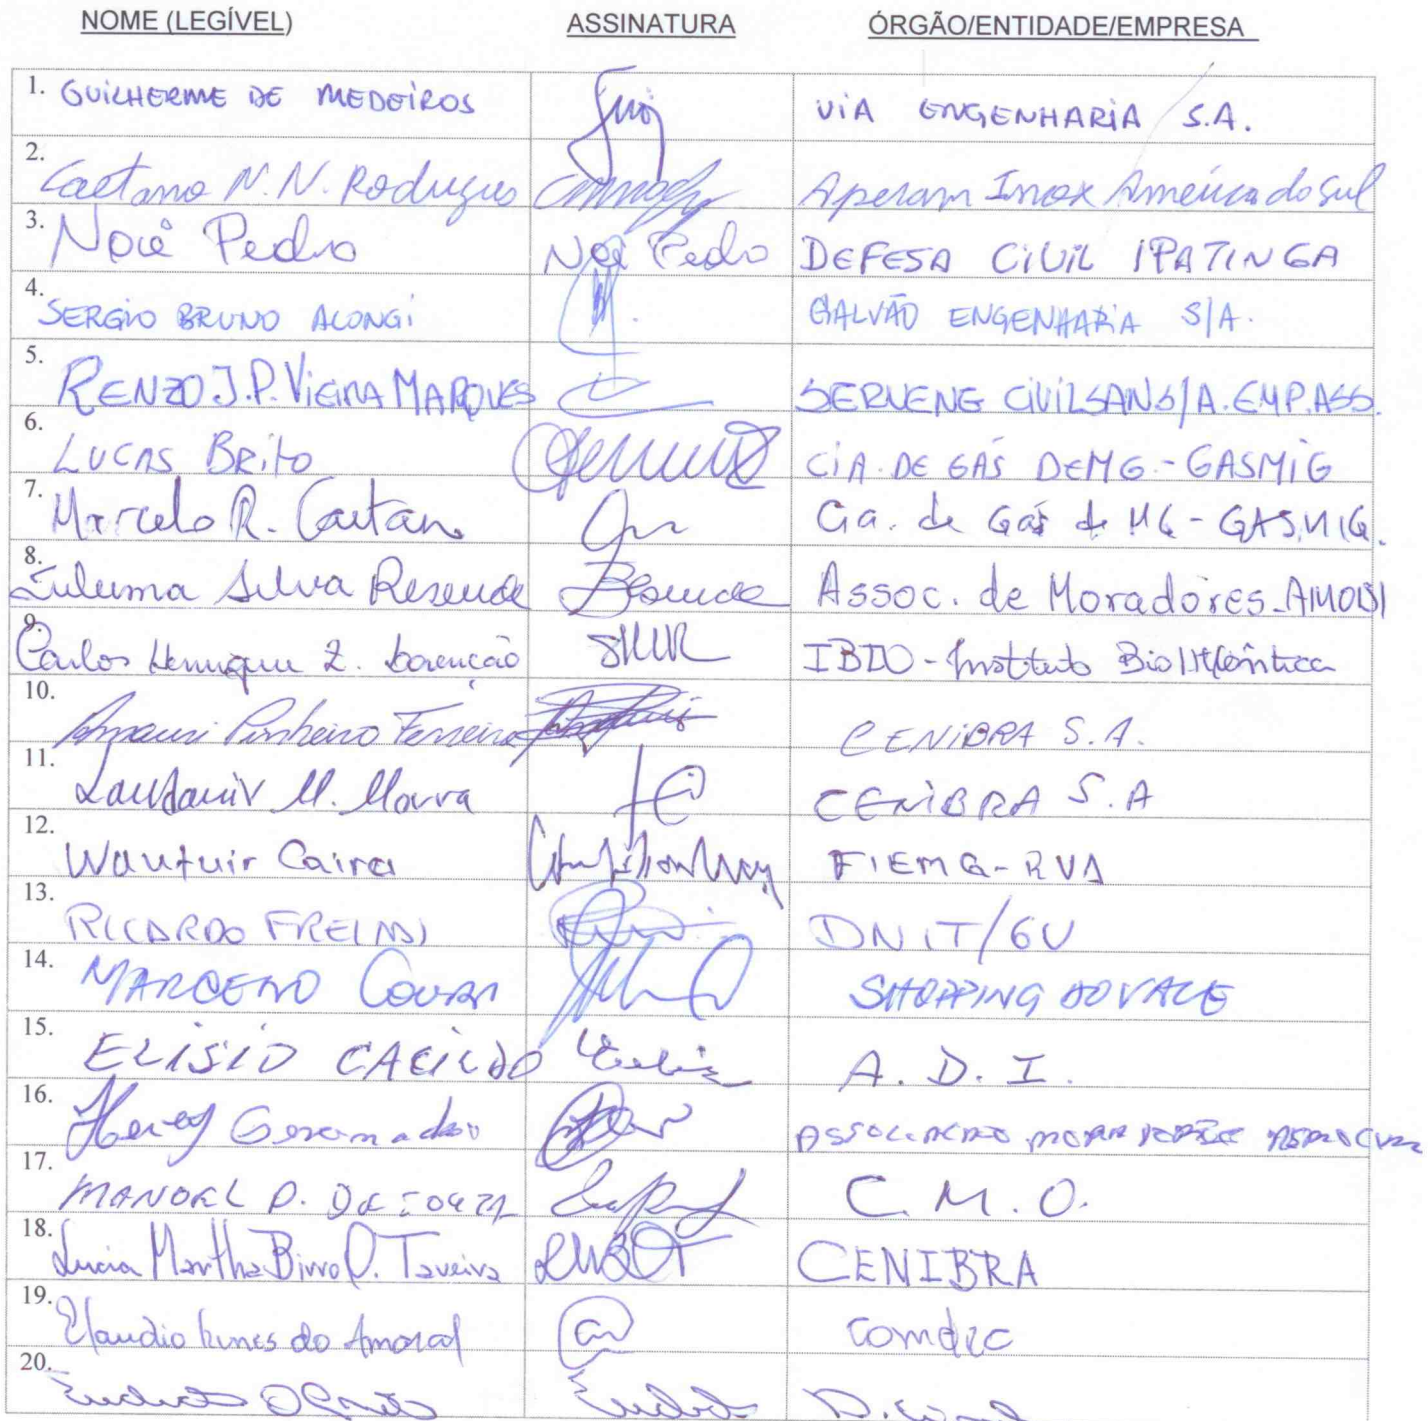 NOME (LEGÍVEL) ASSINATURA ÓRGÃO/ENTIDADE/EMPRESA
1. GUILHERME DE MEDEIROS VIA ENGENHARIA S.A.
2. Caetano N. N. Rodrigues Aperam Inox América do Sul
3. Noé Pedro Noé Pedro DEFESA CIVIL IPATINGA
4. SERGIO BRUNO ALONGI GALVÃO ENGENHARIA S/A.
5. RENZO J.P. VIEIRA MARQUES SERVENG CIVILSAN S/A. EMP. ASS.
6. LUCAS BRITO CIA. DE GÁS DE MG - GASMIG
7. Marcelo R. Caetano Cia. de Gás de MG - GASMIG.
8. Silva Resende Assoc. de Moradores
9. Carlos Henrique Z. IBIO - Instituto BioAtlântica
10. Amauri Pinheiro Ferreira CENIBRA S.A.
11. M. Moura CENIBRA S.A
12. Wantuir Caires FIEMG-RVA
13. RICARDO FREITAS DNIT/GV
14. SHOPPING DO VALE
15. ELISIO CACILDO A. D. I.
16.
17. MANOEL P. C. M. O.
18. Lucia Martha Birro O. Taveira LMBOT CENIBRA
19. Claudio Nunes do Amaral comdec
20.